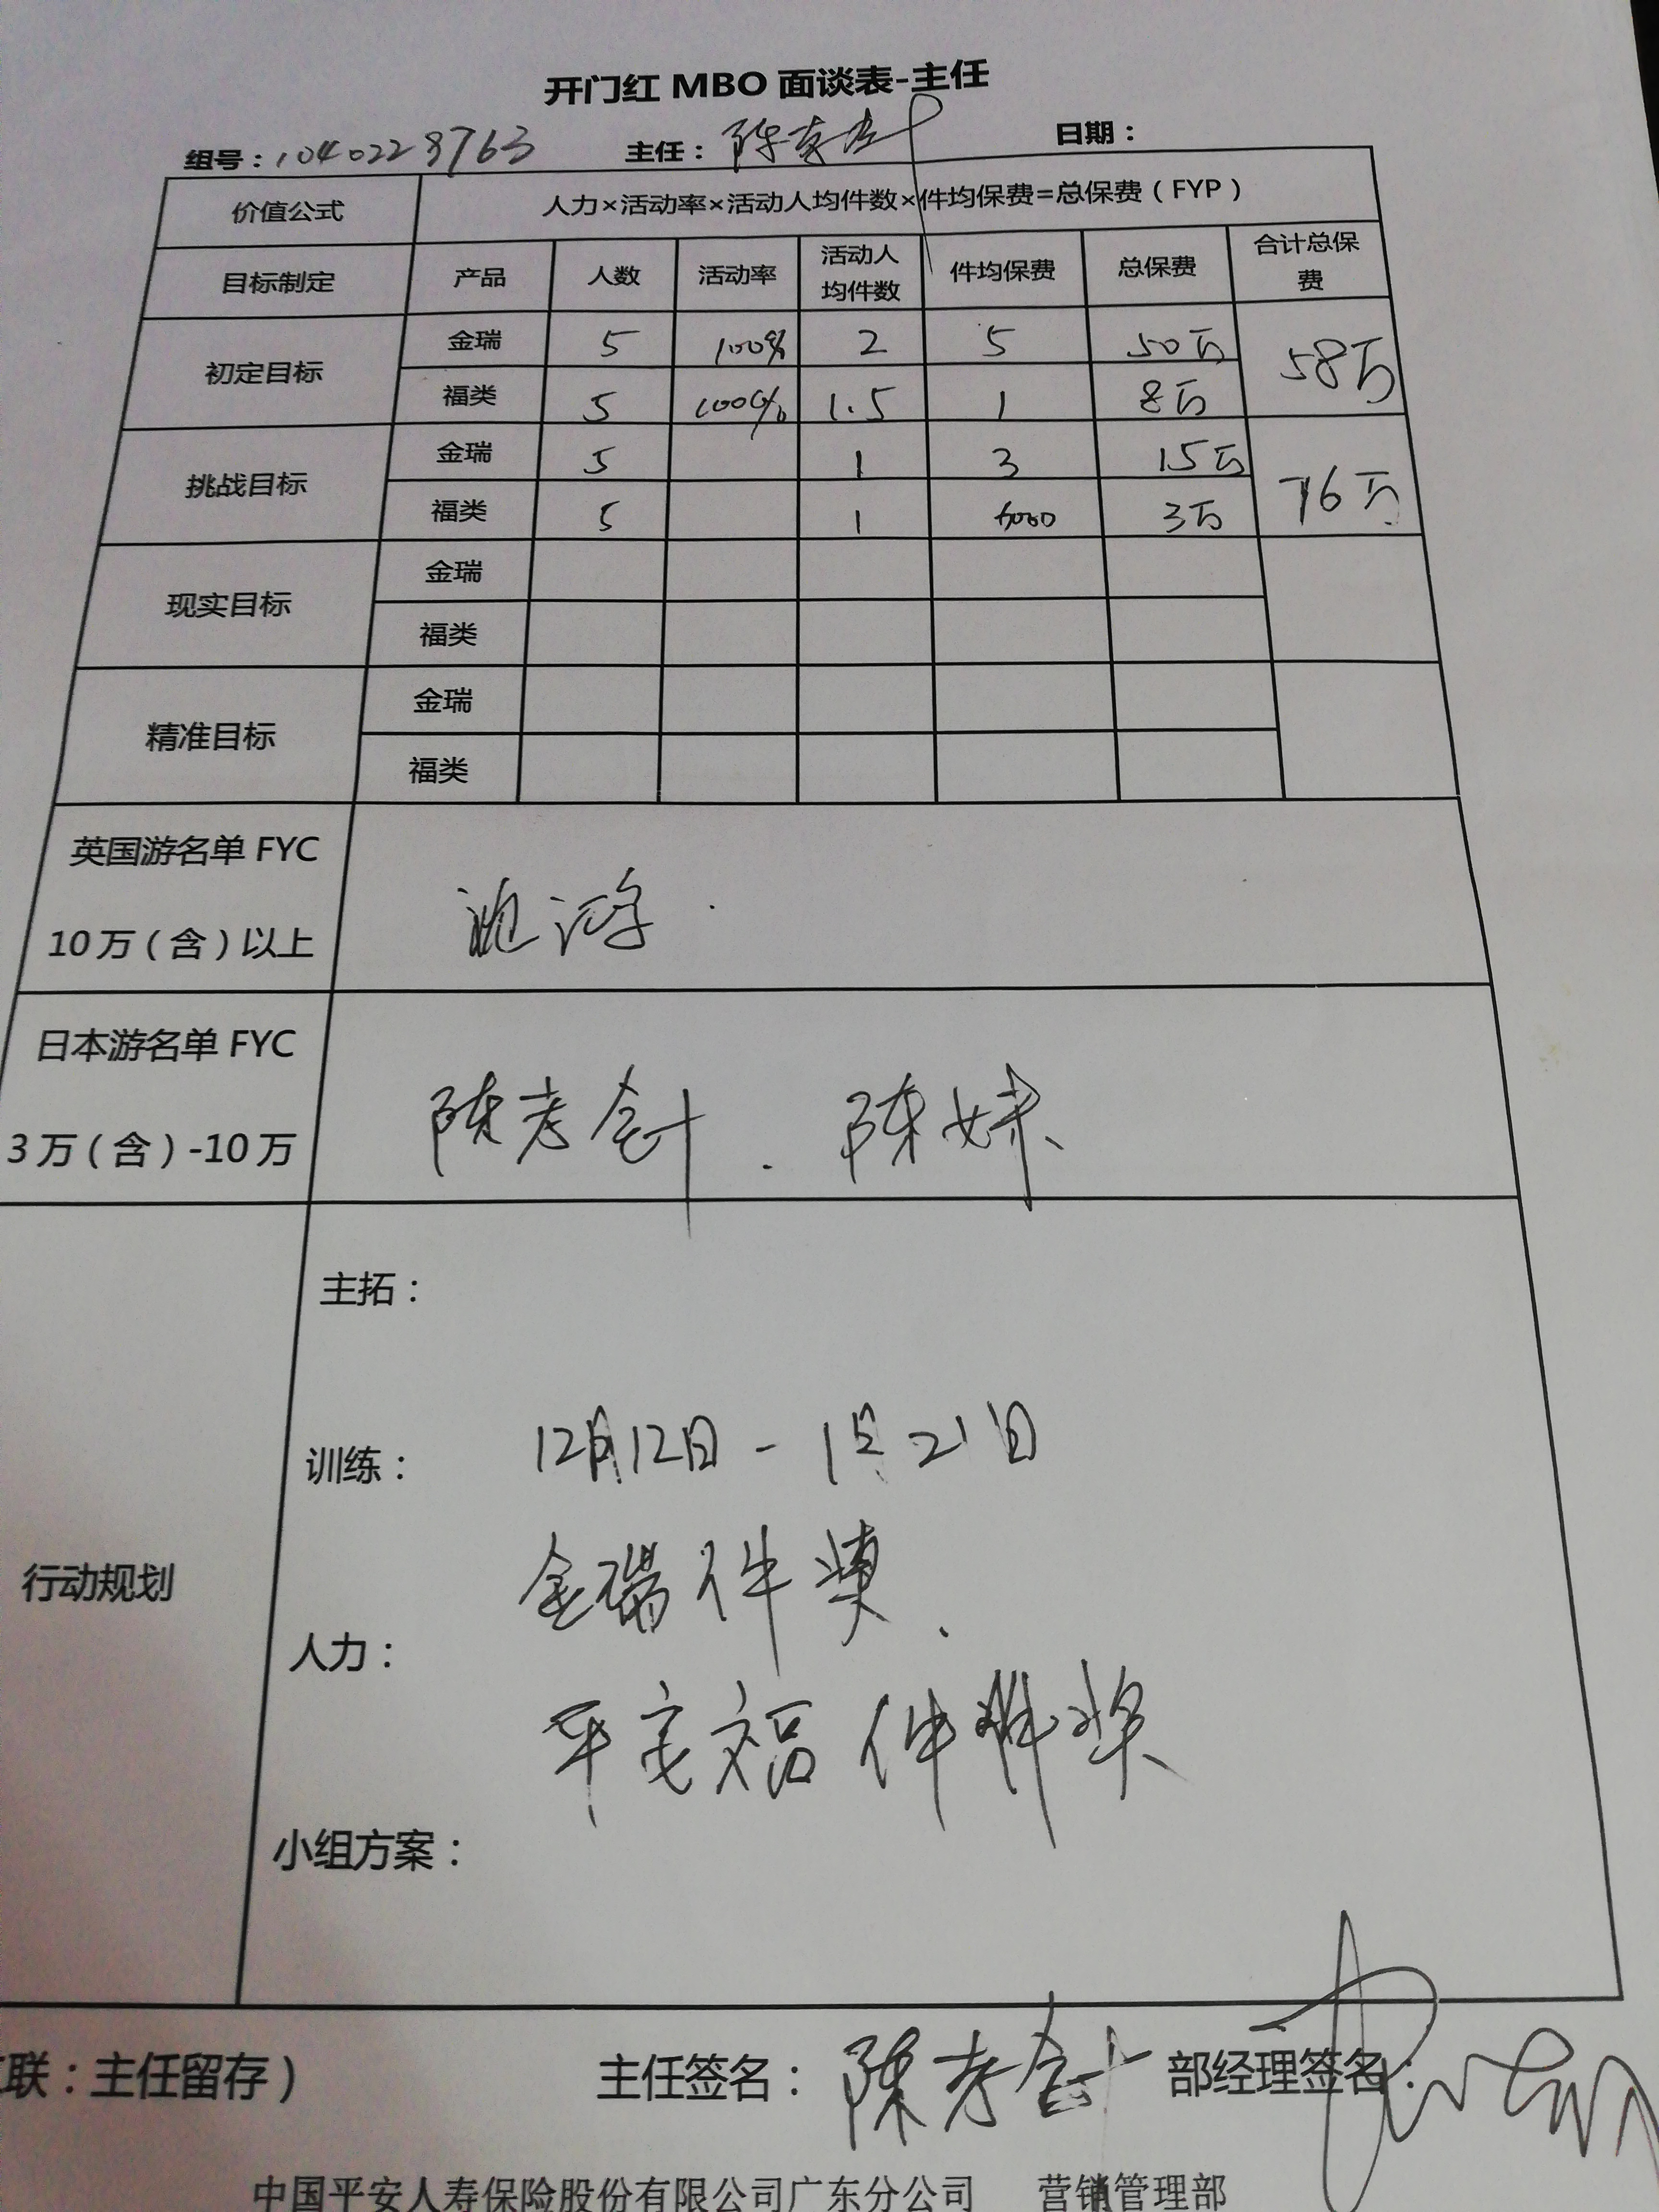 开门红 MBO 面谈表-主任
组号：1040228763 主任：陈 日期：
价值公式 人力×活动率×活动人均件数×件均保费=总保费（FYP）
目标制定 产品 人数 活动率 活动人均件数 件均保费 总保费 合计总保费
初定目标 金瑞 5 100% 2 5 50万 58万
福类 5 100% 1.5 1 8万
挑战目标 金瑞 5 1 3 15万 76万
福类 5 1 6000 3万
现实目标 金瑞
福类
精准目标 金瑞
福类
英国游名单 FYC
10万（含）以上
日本游名单 FYC
3万（含）-10万
陈孝金叶. 陈妹
主拓：
训练： 12月12日 - 1月21日
金瑞件奖.
行动规划
人力：
平安福件件奖
小组方案：
联：主任留存） 主任签名： 陈孝 部经理签名：
中国平安人寿保险股份有限公司广东分公司 营销管理部